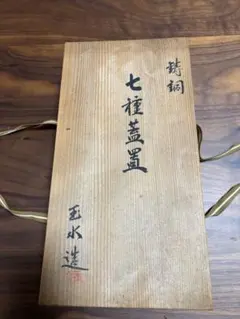 鋳銅
七種蓋置
玉水造